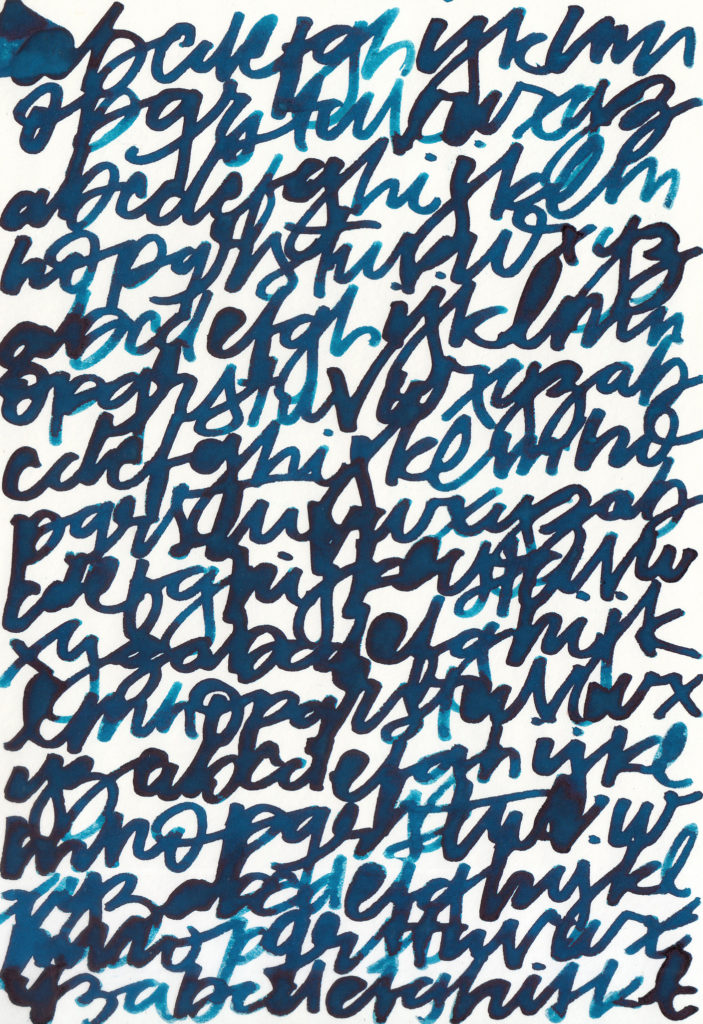 abcdefghijklmn
opqrstuvwxyz
abcdefghijklm
nopqrstuvwxyz
abcdefghijklmn
opqrstuvwxyzab
cdefghijklmno
pqrstuvwxyzab
xyzabcdefghijk
lmnopqrstuvwx
yzabcdefghijkl
mnopqrstuvw
xyzabcdefghijkl
mnopqrstuvwx
yzabcdefghijkl